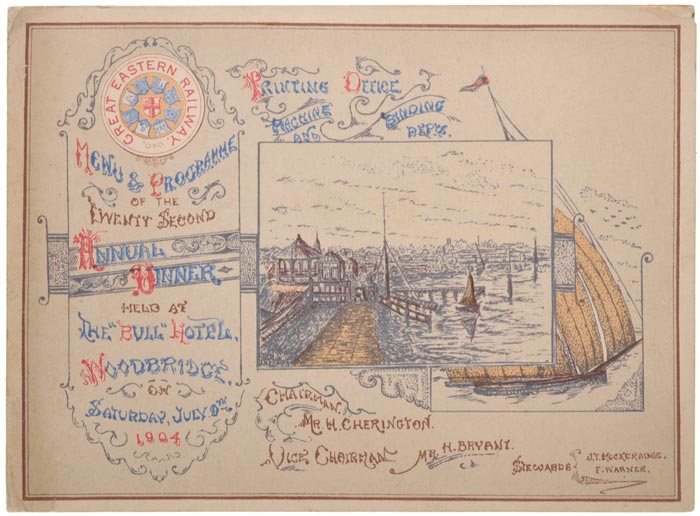 GREAT EASTERN RAILWAY
MENU & PROGRAMME
OF THE
TWENTY SECOND
ANNUAL
DINNER
HELD AT
THE "BULL" HOTEL,
WOODBRIDGE,
ON
SATURDAY, JULY 9TH
1904
PRINTING OFFICE
MACHINE
AND
BINDING
DEPTS.
CHAIRMAN,
MR. H. CHERINGTON.
VICE CHAIRMAN
MR. H. BRYANT.
STEWARDS
WARNER.